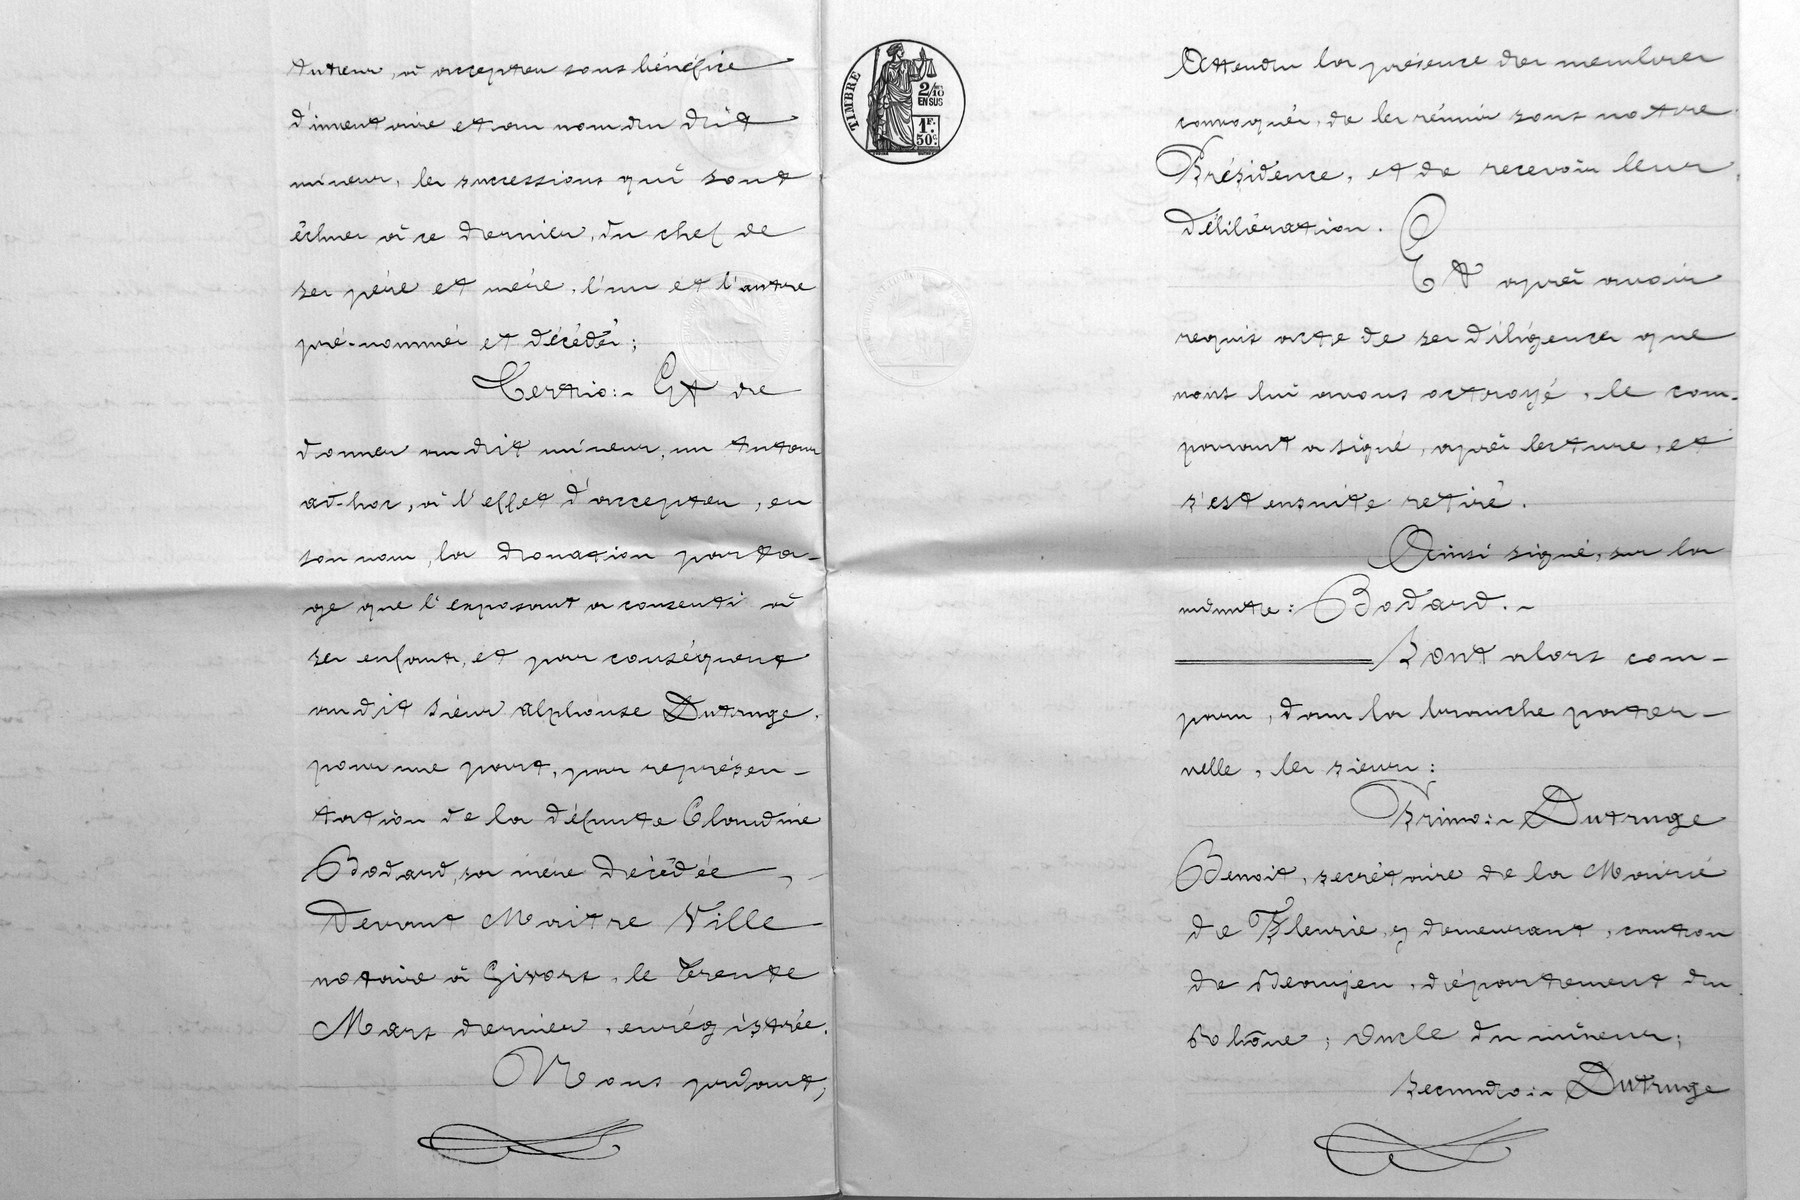 tuteur, à accepter sous bénéfice
d'inventaire et au nom du dit
mineur, les successions qui sont
échues à ce dernier, du chef de
ses père et mère, l'un et l'autre
pré-nommés et décédés;
Tertio:~ Et de
donner au dit mineur, un tuteur
ad-hoc, à l'effet d'accepter, en
son nom, la donation parta-
ge que l'exposant a consenti à
ses enfants, et par conséquent
au dit sieur alphonse Dutruge,
pour une part, par représen-
tation de la défunte Claudine
Bodard, sa mère décédée,
Devant Maitre Ville
notaire à Givors, le trente
Mars dernier, enrégistrée.
Nous juge,
TIMBRE
2/10 EN SUS
1F. 50c.
Attendu la présence des membres
convoqués, de les réunir sous notre
Présidence, et de recevoir leur
délibération.
Et après avoir
requis acte de ses diligences que
nous lui avons octroyé, le com-
parant a signé, après lecture, et
s'est ensuite retiré.
Ainsi signé, sur la
minute: Bodard.~
Sont alors com-
paru, dans la branche pater-
nelle, les sieurs:
Primo:~ Dutruge
Benoit, secrétaire de la Mairie
de Fleurie, y demeurant, canton
de Beaujeu, département du
Rhône; oncle du mineur;
Secundo:~ Dutruge